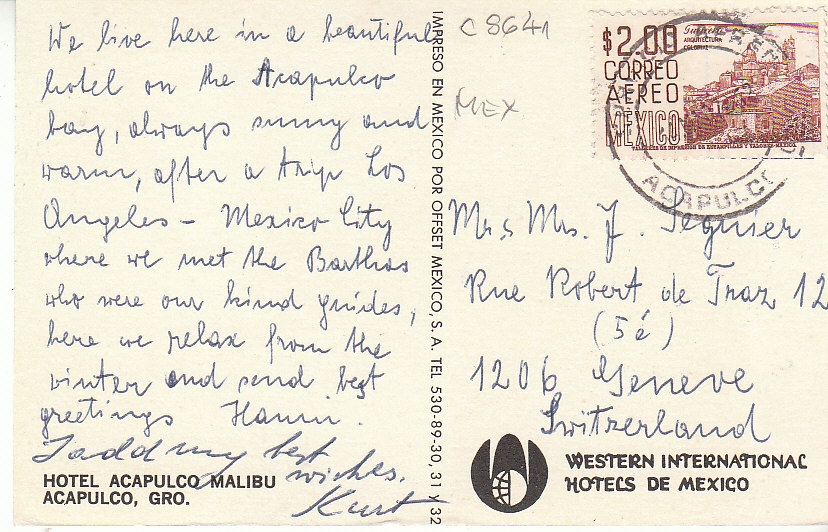 We live here in a beautiful
hotel on the Acapulco
bay, always sunny and
warm, after a trip Los
Angeles – Mexico City
where we met the Barthas
who were our kind guides,
here we relax from the
winter and send best
greetings Hanni.
I add my best
wishes.
Kurt
HOTEL ACAPULCO MALIBU
ACAPULCO, GRO.
IMPRESO EN MEXICO POR OFFSET MEXICO, S. A. TEL 530-89-30, 31 y 32
C 8641
MEX
$2.00
CORREO
AEREO
MEXICO
ARQUITECTURA
COLONIAL
TALLERES DE IMPRESION DE ESTAMPILLAS Y VALORES-MEXICO
ACAPULCO
Mrs Mrs. J. Seguier
Rue Robert de Traz 12
(5è)
1206 Geneve
Switzerland
WESTERN INTERNATIONAL
HOTELS DE MEXICO